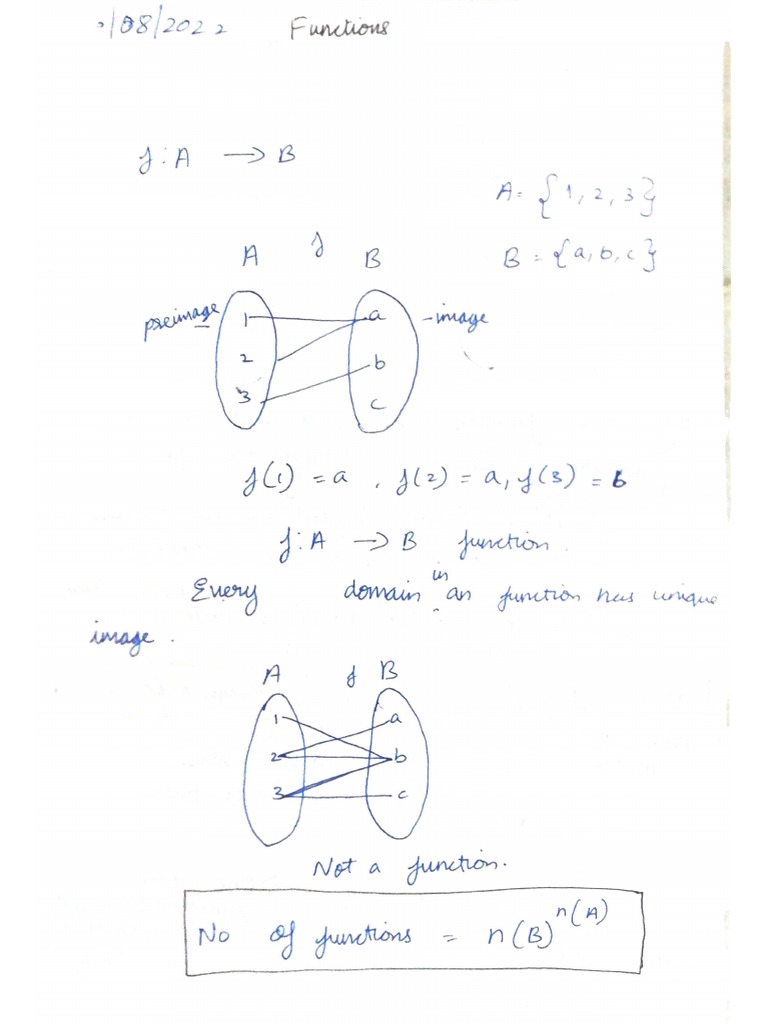 /08/2022 Functions
f : A → B
A = {1, 2, 3}
B = {a, b, c}
A f B
preimage 1 a - image
2 b
3 c
f(1) = a , f(2) = a, f(3) = b
f : A → B function.
Every domain in an function has unique
image .
A f B
1 a
2 b
3 c
Not a function.
No of functions = n(B)^n(A)